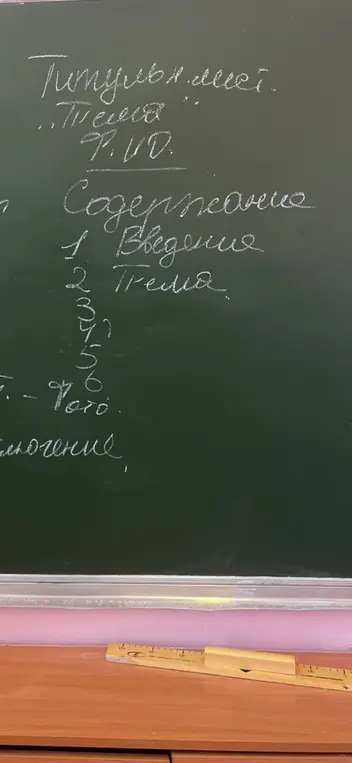 Титульн. лист.
„Тема"
Ф.И.О.
Содержание
1 Введение
2 Тема
3
4)
5
6
- Фото.